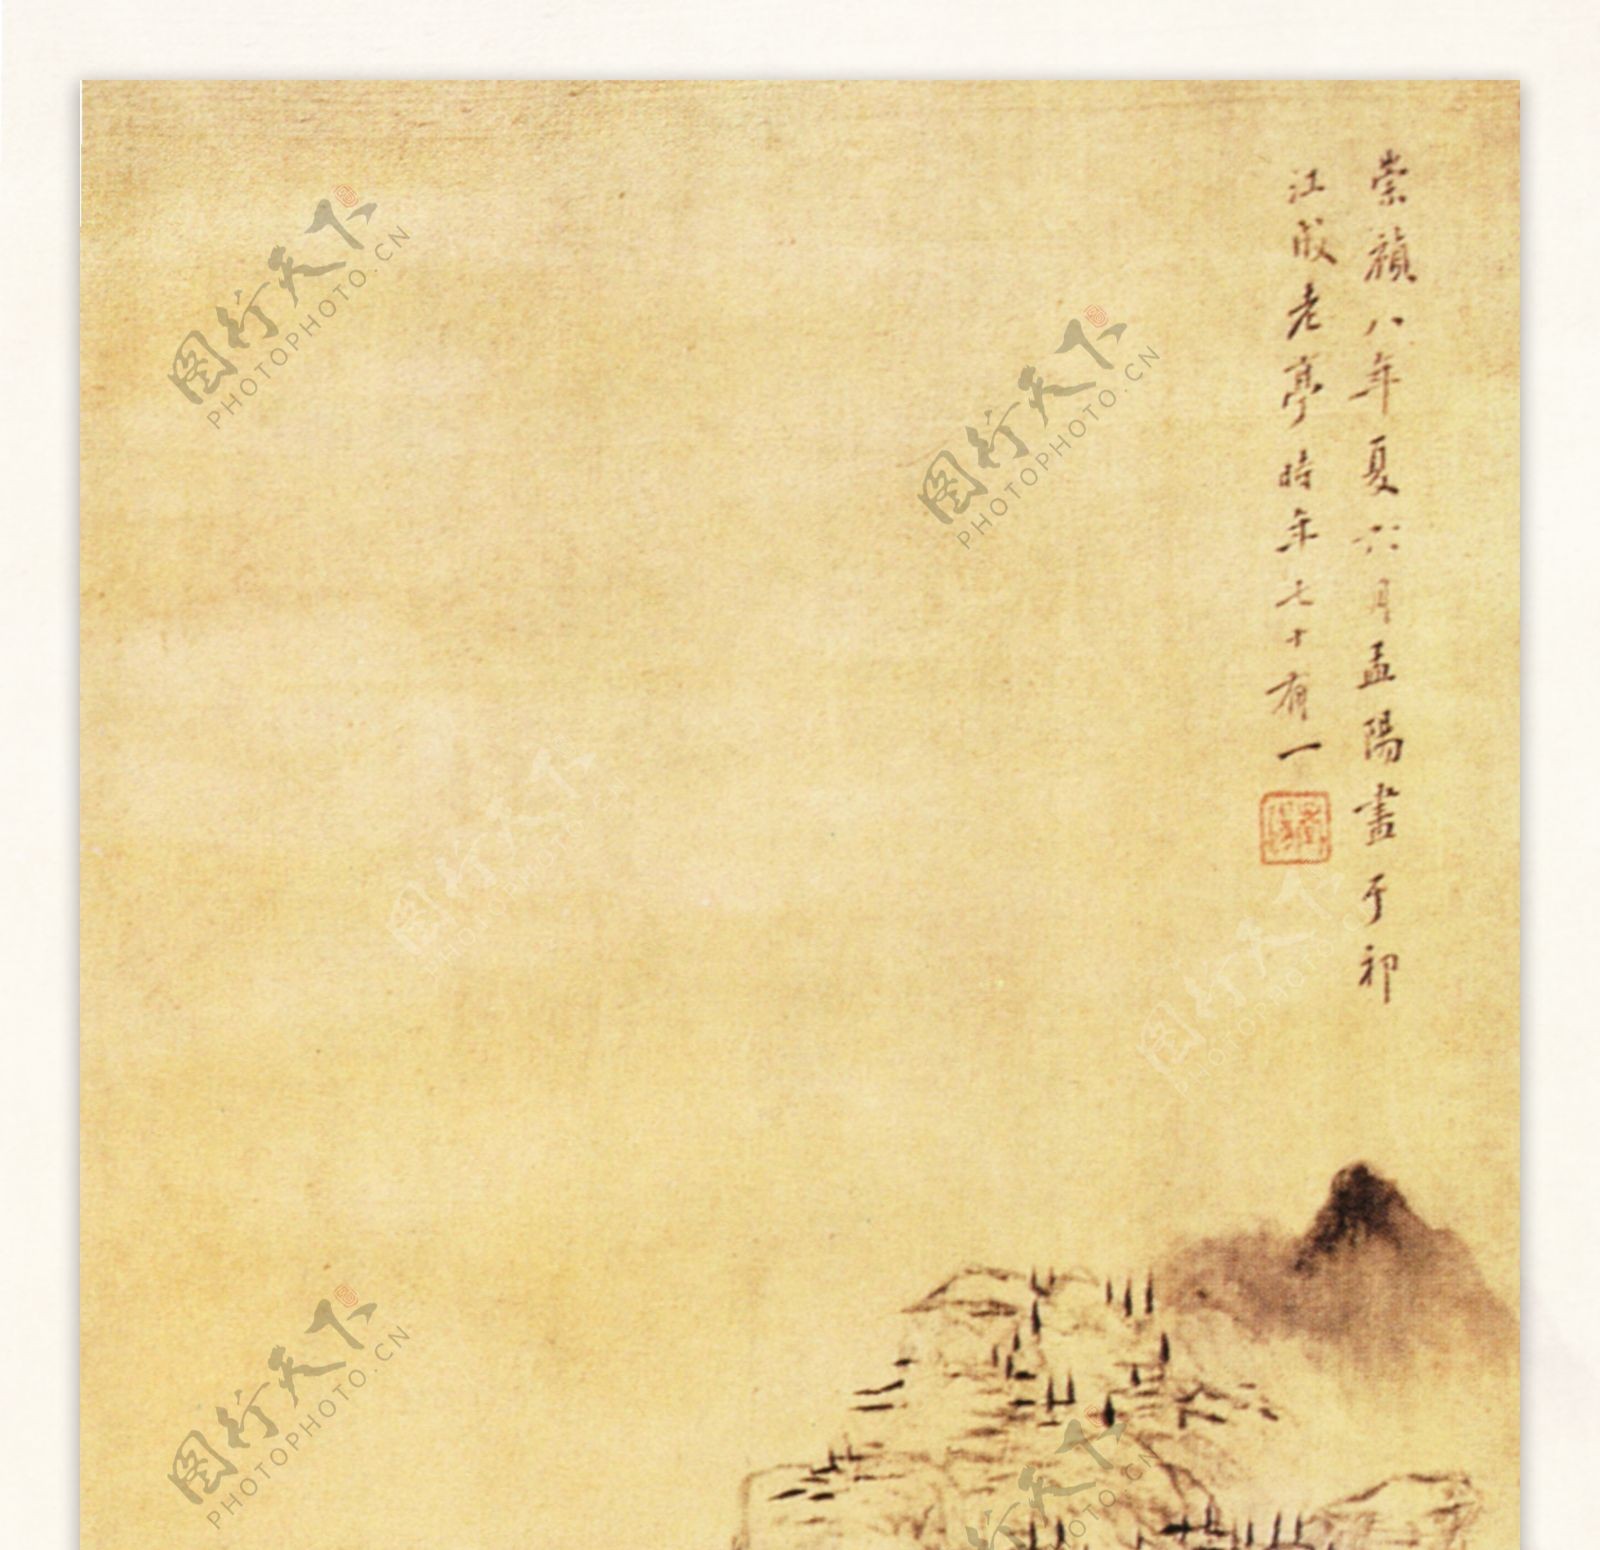 崇禎八年夏六月孟陽畫于祁
江殷老亭時年七十有一
孟陽
图行天下
PHOTOPHOTO.CN
图行天下
PHOTOPHOTO.CN
图行天下
PHOTOPHOTO.CN
图行天下
PHOTOPHOTO.CN
图行天下
PHOTOPHOTO.CN
图行天下
PHOTOPHOTO.CN